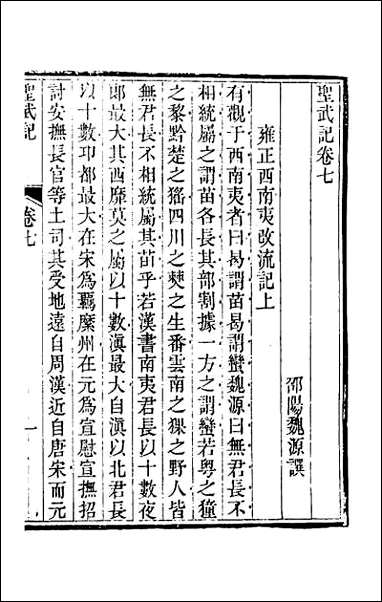 聖武記卷七
邵陽魏源譔
雍正西南夷改流記上
有觀于西南夷者曰曷謂苗曷謂蠻魏源曰無君長不
相統屬之謂苗各長其部割據一方之謂蠻若粵之獞
之黎黔楚之猺四川之僰之生番雲南之猓之野人皆
無君長不相統屬其苗乎若漢書南夷君長以十數夜
郎最大其西靡莫之屬以十數滇最大自滇以北君長
以十數邛都最大在宋為羈縻州在元為宣慰宣撫招
討安撫長官等土司其受地遠自周漢近自唐宋而元
聖武記
卷七
一